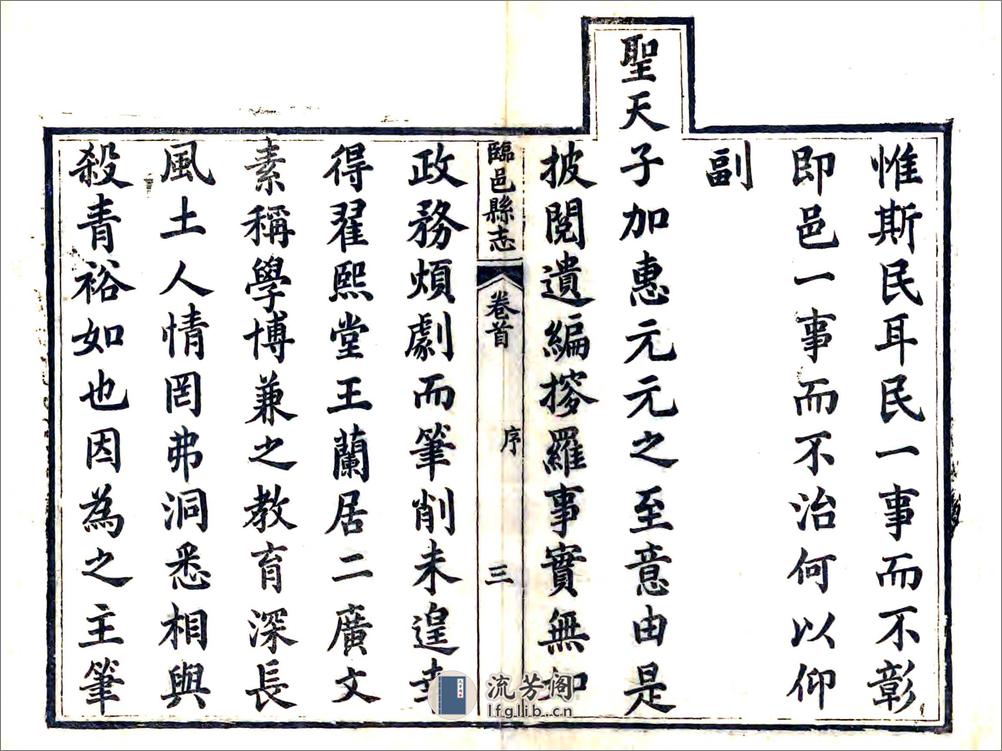 惟斯民耳民一事而不彰
即邑一事而不治何以仰
副
聖天子加惠元元之至意由是
披閱遺編搜羅事實無如
臨邑縣志 卷首 序 三
政務煩劇而筆削未遑幸
得翟熙堂王蘭居二廣文
素稱學博兼之教育深長
風土人情罔弗洞悉相與
殺青裕如也因為之主筆
流芳阁
lfglib.cn